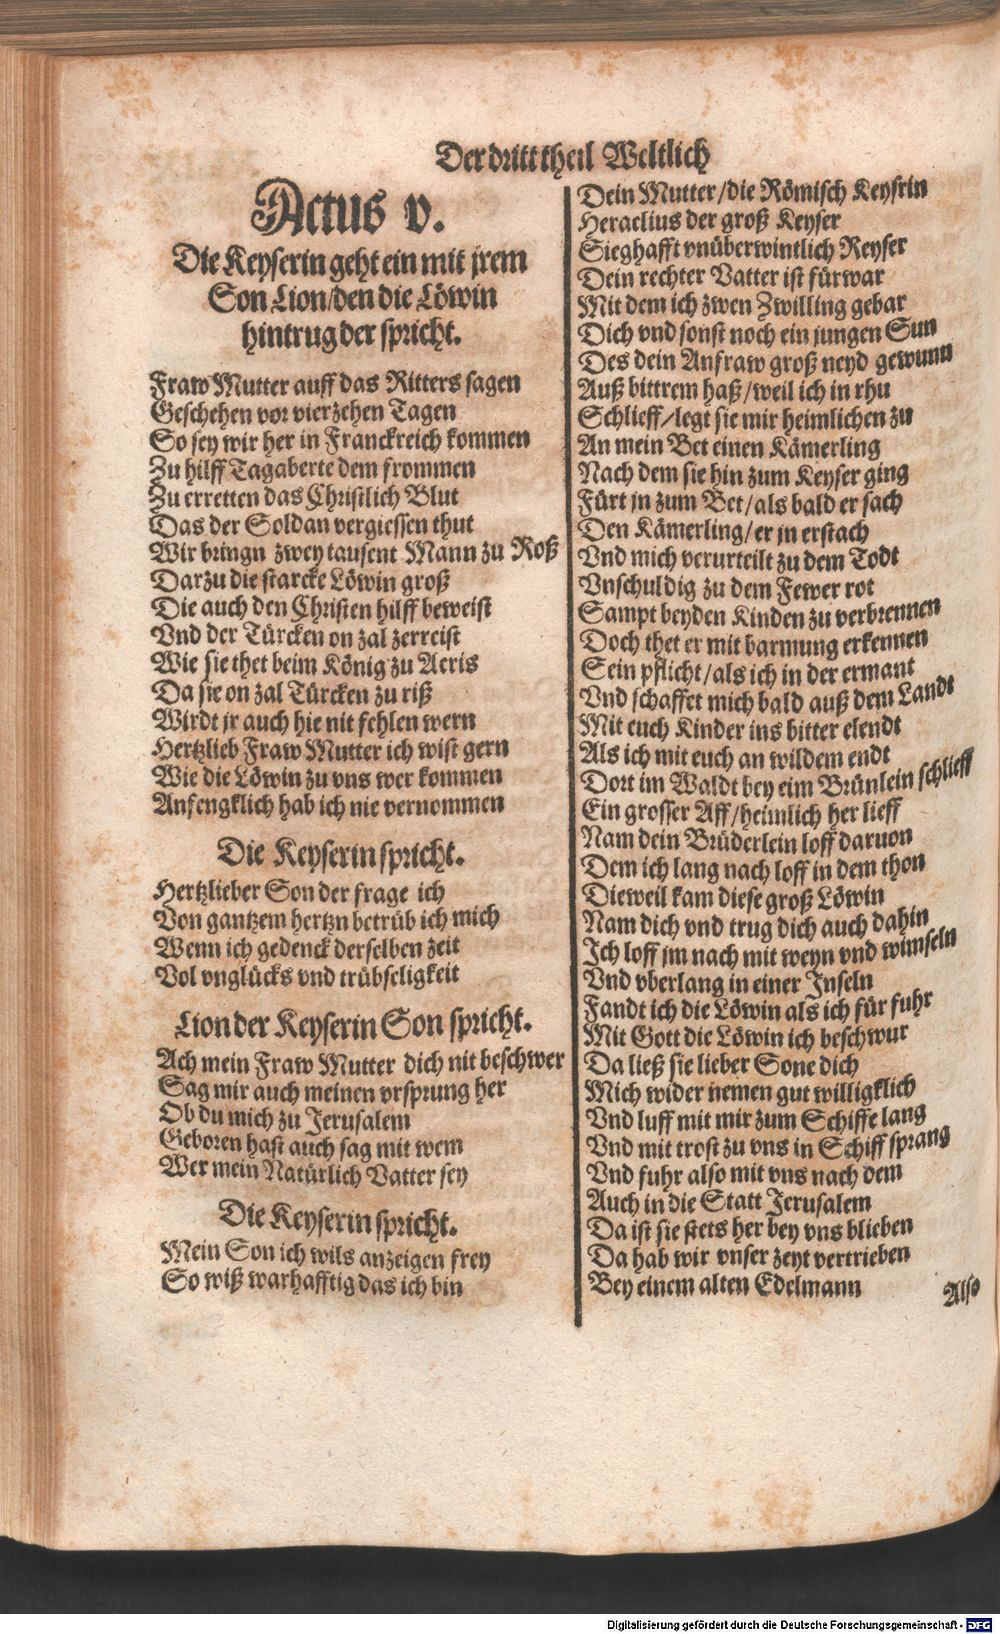 Der dritt theil Weltlich
Actus v.
Die Keyserin geht ein mit jrem
Son Lion/den die Löwin
hintrug der spricht.
Fraw Mutter auff das Ritters sagen
Geschehen vor vierzehen Tagen
So sey wir her in Franckreich kommen
Zu hilff Tagaberte dem frommen
Zu erretten das Christlich Blut
Das der Soldan vergiessen thut
Wir bringn zwey tausent Mann zu Roß
Darzu die starcke Löwin groß
Die auch den Christen hilff beweist
Vnd der Türcken on zal zerreist
Wie sie thet beim König zu Acris
Da sie on zal Türcken zu riß
Wirdt jr auch hie nit fehlen wern
Hertzlieb Fraw Mutter ich wist gern
Wie die Löwin zu vns wer kommen
Anfengklich hab ich nie vernommen
Die Keyserin spricht.
Hertzlieber Son der frage ich
Von gantzem hertzn betrüb ich mich
Wenn ich gedenck derselben zeit
Vol vnglücks vnd trübseligkeit
Lion der Keyserin Son spricht.
Ach mein Fraw Mutter dich nit beschwer
Sag mir auch meinen vrsprung her
Ob du mich zu Jerusalem
Geboren hast auch sag mit wem
Wer mein Natürlich Vatter sey
Die Keyserin spricht.
Mein Son ich wils anzeigen frey
So wiß warhafftig das ich bin
Dein Mutter/die Römisch Keysrin
Heraclius der groß Keyser
Sieghafft vnüberwintlich Reyser
Dein rechter Vatter ist fürwar
Mit dem ich zwen Zwilling gebar
Dich vnd sonst noch ein jungen Sun
Des dein Anfraw groß neyd gewunn
Auß bittrem haß/weil ich in rhu
Schlieff/legt sie mir heimlichen zu
An mein Bet einen Kämerling
Nach dem sie hin zum Keyser ging
Fürt jn zum Bet/als bald er sach
Den Kämerling/er jn erstach
Vnd mich verurteilt zu dem Todt
Vnschuldig zu dem Fewer rot
Sampt beyden Kinden zu verbrennen
Doch thet er mit barmung erkennen
Sein pflicht/als ich in der ermant
Vnd schaffet mich bald auß dem Landt
Mit euch Kinder ins bitter elendt
Als ich mit euch an wildem endt
Dort im Waldt bey eim Brünlein schlieff
Ein grosser Aff/heimlich her lieff
Nam dein Brüderlein loff daruon
Dem ich lang nach loff in dem thon
Dieweil kam diese groß Löwin
Nam dich vnd trug dich auch dahin
Ich loff jm nach mit weyn vnd wimseln
Vnd vberlang in einer Inseln
Fandt ich die Löwin als ich für fuhr
Mit Gott die Löwin ich beschwur
Da ließ sie lieber Sone dich
Mich wider nemen gut willigklich
Vnd luff mit mir zum Schiffe lang
Vnd mit trost zu vns in Schiff sprang
Vnd fuhr also mit vns nach dem
Auch in die Statt Jerusalem
Da ist sie stets her bey vns blieben
Da hab wir vnser zeyt vertrieben
Bey einem alten Edelmann
Also
Digitalisierung gefördert durch die Deutsche Forschungsgemeinschaft - DFG